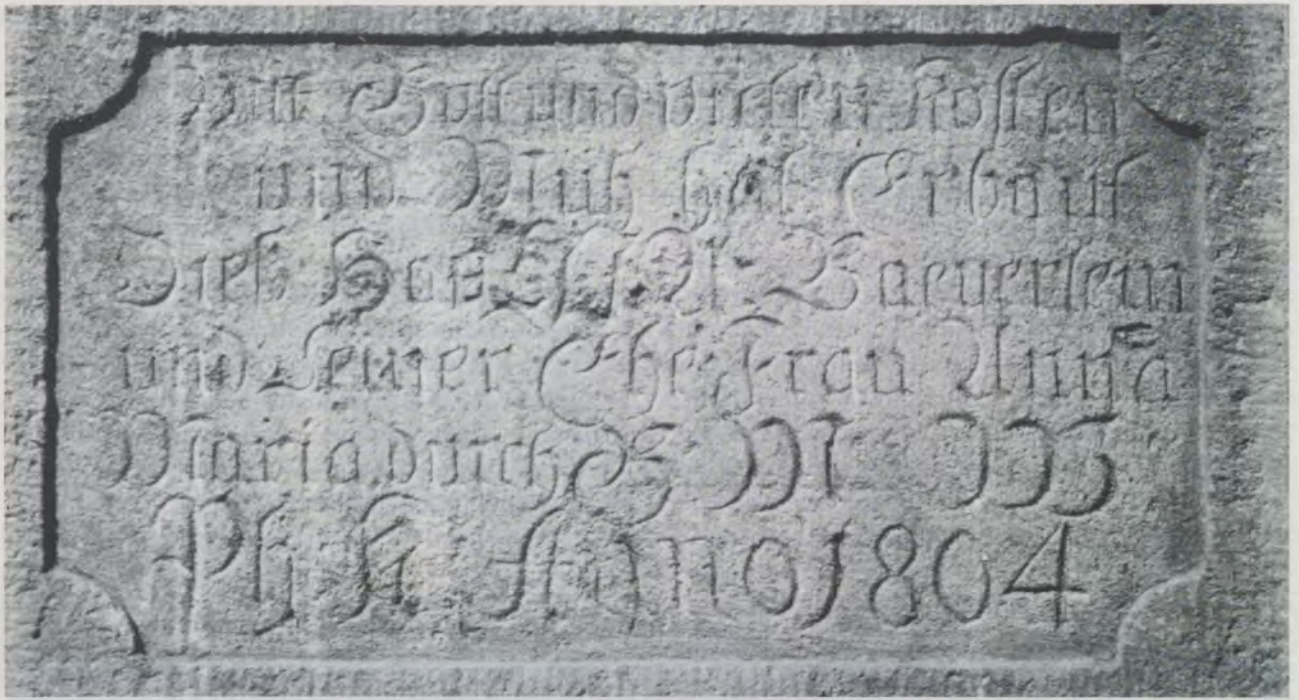 Mit Gott und vielen Kosten
und Müh hat Erbaut
Dieß Haß Baeuerlein
und Seiner Ehe Frau Anna
Maria durch M W
Ph K Anno 1804